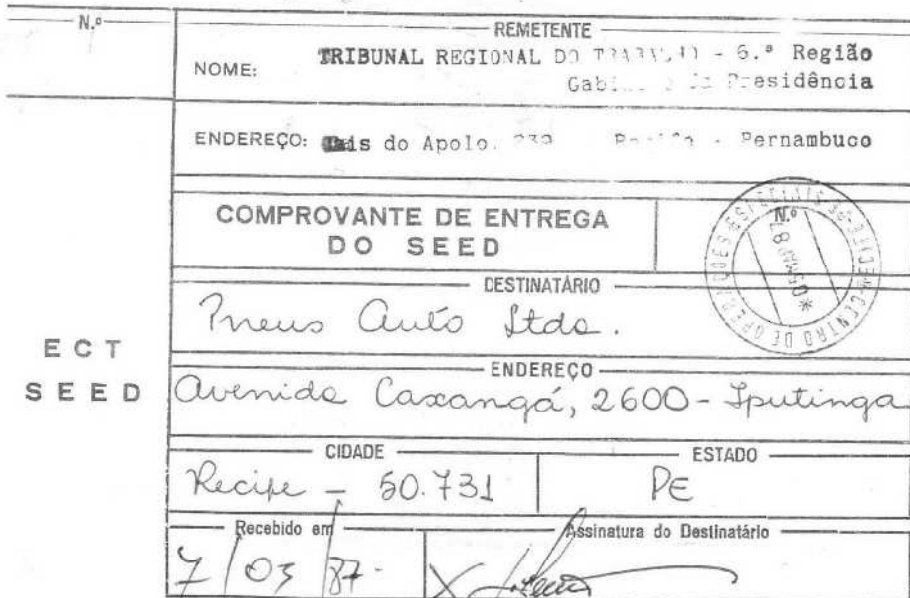 N.º
REMETENTE
NOME: TRIBUNAL REGIONAL DO TRABALHO - 6.ª Região
Gabinete da Presidência
ENDEREÇO: Cais do Apolo, 239 Recife - Pernambuco
COMPROVANTE DE ENTREGA
DO SEED
N.º
DESTINATÁRIO
Pneus Auto Ltda.
ECT
SEED
ENDEREÇO
Avenida Caxangá, 2600 - Iputinga
CIDADE
Recife - 50.731
ESTADO
PE
Recebido em
7/03/87
Assinatura do Destinatário
X